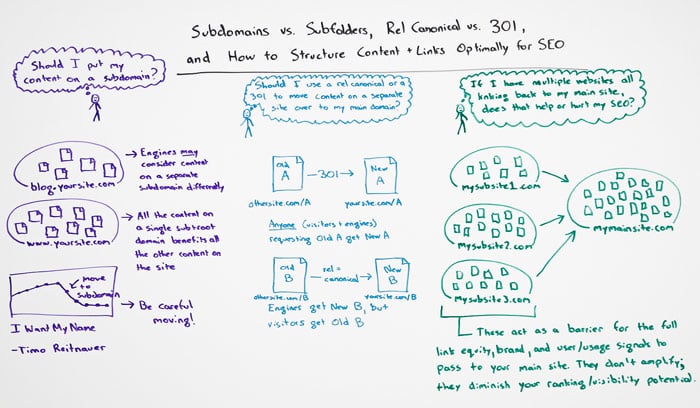 Subdomains vs. Subfolders, Rel Canonical vs. 301,
and How to Structure Content + Links Optimally for SEO
Should I put my
content on a subdomain?
blog.yoursite.com
→ Engines may
consider content
on a separate
subdomain differently
www.yoursite.com
→ All the content on
a single sub+root
domain benefits all
the other content on
the site
move
to
subdomain
→ Be careful
moving!
I Want My Name
-Timo Reitnauer
Should I use a rel canonical or a
301 to move content on a separate
site over to my main domain?
Old
A
—301→
New
A
othersite.com/A
yoursite.com/A
Anyone (visitors + engines)
requesting Old A get New A
Old
B
rel=
canonical
New
B
othersite.com/B
yoursite.com/B
Engines get New B, but
visitors get Old B
If I have multiple websites all
linking back to my main site,
does that help or hurt my SEO?
mysubsite1.com
mysubsite2.com
mysubsite3.com
mymainsite.com
These act as a barrier for the full
link equity, brand, and user/usage signals to
pass to your main site. They don't amplify;
they diminish your ranking/visibility potential.